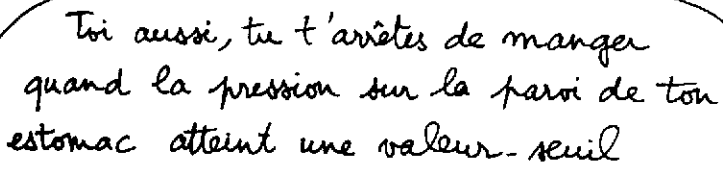 Toi aussi, tu t'arrêtes de manger
quand la pression sur la paroi de ton
estomac atteint une valeur-seuil